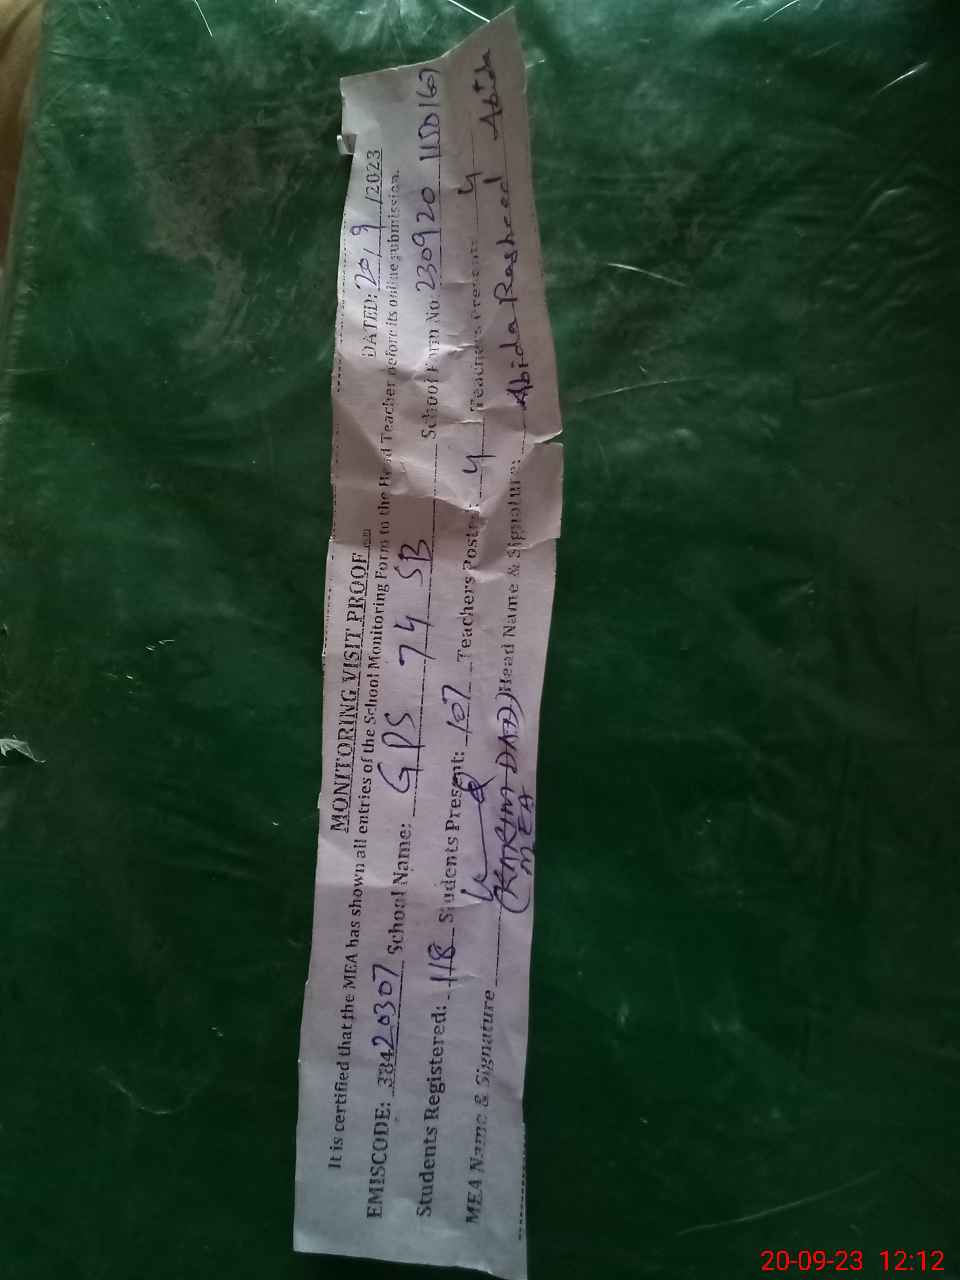 MONITORING VISIT PROOF
DATED: 20/9/2023
It is certified that the MEA has shown all entries of the School Monitoring Form to the Head Teacher before its online submission.
EMISCODE: 33420307 School Name: GPS 74 SB School Form No. 230920 1150167
Students Registered: 118 Students Present: 107 Teachers Posted: 4 Teachers Present: 4
MEA Name & Signature (KARIM DAD) Head Name & Signature: Abida Rasheed Abida
MEA
20-09-23 12:12